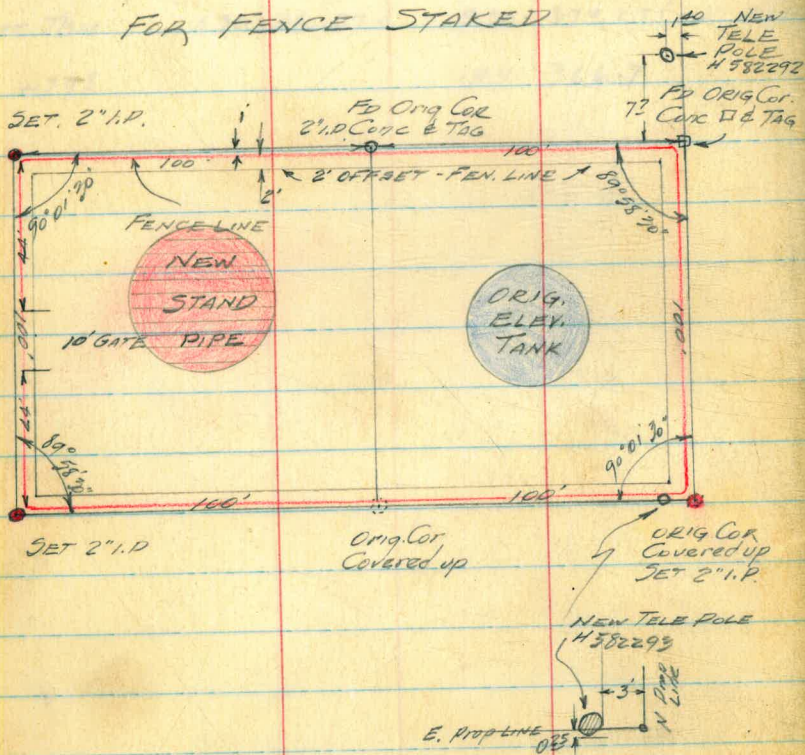 FOR FENCE STAKED
1.40
NEW
TELE
POLE
H 582292
SET. 2" I.P.
1'
Fd Orig Cor
2" I.P Conc & TAG
7.2
FD ORIG Cor.
Conc □ & TAG
100'
100'
2'
2' OFFSET - FEN. LINE
90° 01' 30"
89° 58' 30"
FENCE LINE
NEW
STAND
PIPE
ORIG.
ELEV.
TANK
44'
10' GATE
100'
100'
44'
89° 58' 30"
90° 01' 30"
100'
100'
SET 2" I.P
Orig. Cor.
Covered up
ORIG COR
Covered up
SET 2" I.P.
NEW TELE POLE
H 582293
3'
N Prop
LINE
E. Prop LINE
0.25